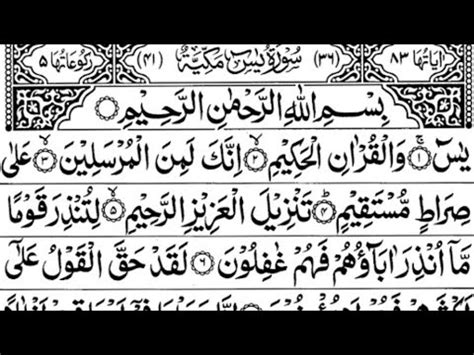 اٰيَاتُهَا ٨٣ (٣٦) سُوْرَةُ يٰسٓ مَكِّيَّةٌ (٤١) رُكُوْعَاتُهَا ٥
بِسْمِ اللّٰهِ الرَّحْمٰنِ الرَّحِيْمِ
يٰسٓ ۝١ وَالْقُرْاٰنِ الْحَكِيْمِ ۝٢ اِنَّكَ لَمِنَ الْمُرْسَلِيْنَ ۝٣ عَلٰى
صِرَاطٍ مُّسْتَقِيْمٍ ۝٤ تَنْزِيْلَ الْعَزِيْزِ الرَّحِيْمِ ۝٥ لِتُنْذِرَ قَوْمًا
مَّآ اُنْذِرَ اٰبَآؤُهُمْ فَهُمْ غٰفِلُوْنَ ۝٦ لَقَدْ حَقَّ الْقَوْلُ عَلٰٓى